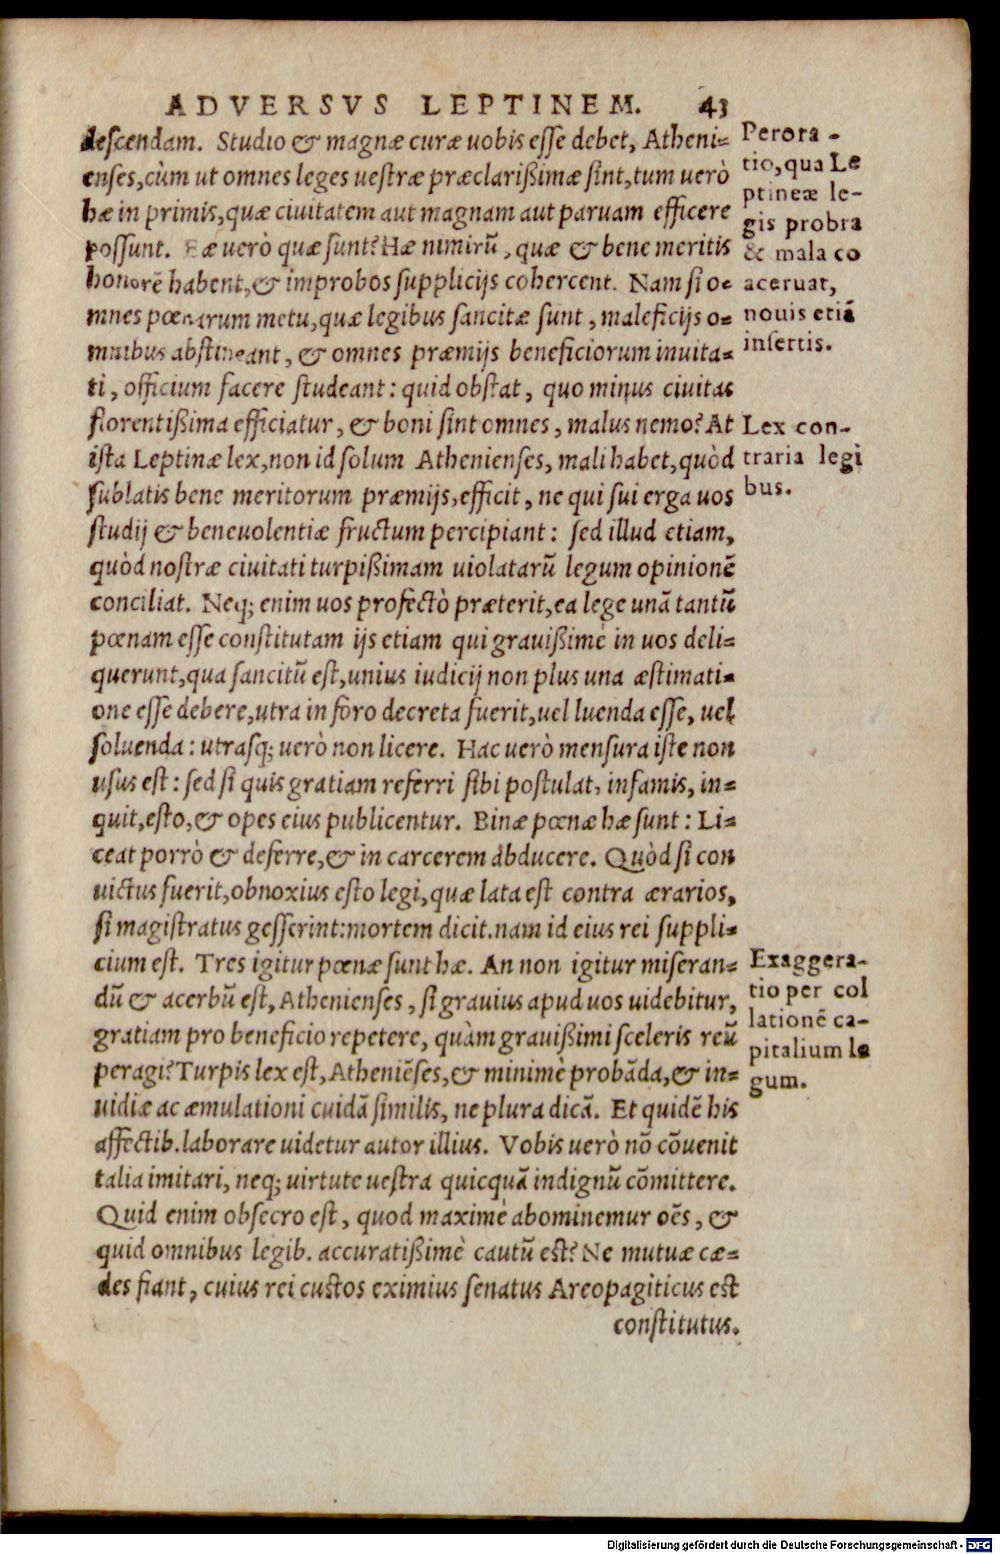 ADVERSVS LEPTINEM. 43
descendam. Studio & magnæ curæ uobis esse debet, Atheni-
enses, cùm ut omnes leges uestræ præclarißimæ sint, tum uerò
hæ in primis, quæ ciuitatem aut magnam aut paruam efficere
possunt. Eæ uerò quæ sunt? Hæ nimirũ, quæ & bene meritis
honorẽ habent, & improbos supplicijs cohercent. Nam si o-
mnes pœnarum metu, quæ legibus sancitæ sunt, maleficijs o-
mnibus abstineant, & omnes præmijs beneficiorum inuita-
ti, officium facere studeant: quid obstat, quo minus ciuitas
florentißima efficiatur, & boni sint omnes, malus nemo? At
ista Leptinæ lex, non id solum Athenienses, mali habet, quòd
sublatis bene meritorum præmijs, efficit, ne qui sui erga uos
studij & beneuolentiæ fructum percipiant: sed illud etiam,
quòd nostræ ciuitati turpißimam uiolatarũ legum opinionẽ
conciliat. Neq; enim uos profectò præterit, ea lege unã tantũ
pœnam esse constitutam ijs etiam qui grauißimè in uos deli-
querunt, qua sancitũ est, unius iudicij non plus una æstimati-
one esse debere, utra in foro decreta fuerit, uel luenda esse, uel
soluenda: utrasq; uerò non licere. Hac uerò mensura iste non
usus est: sed si quis gratiam referri sibi postulat, infamis, in-
quit, esto, & opes eius publicentur. Binæ pœnæ hæ sunt: Li-
ceat porrò & deferre, & in carcerem abducere. Quòd si con
uictus fuerit, obnoxius esto legi, quæ lata est contra ærarios,
si magistratus gesserint: mortem dicit. nam id eius rei suppli-
cium est. Tres igitur pœnæ sunt hæ. An non igitur miseran-
dũ & acerbũ est, Athenienses, si grauius apud uos uidebitur,
gratiam pro beneficio repetere, quàm grauißimi sceleris reũ
peragi? Turpis lex est, Atheniẽses, & minimè probãda, & in-
uidiæ ac æmulationi cuidã similis, ne plura dicã. Et quidẽ his
affectib. laborare uidetur autor illius. Vobis uerò nõ cõuenit
talia imitari, neq; uirtute uestra quicquã indignũ cõmittere.
Quid enim obsecro est, quod maximè abominemur oẽs, &
quid omnibus legib. accuratißimè cautũ est? Ne mutuæ cæ-
des fiant, cuius rei custos eximius senatus Areopagiticus est
constitutus.
Perora-
tio, qua Le
ptineæ le-
gis probra
& mala co
aceruat,
nouis etiã
insertis.
Lex con-
traria legi
bus.
Exaggera-
tio per col
lationẽ ca-
pitalium le
gum.
Digitalisierung gefördert durch die Deutsche Forschungsgemeinschaft - DFG